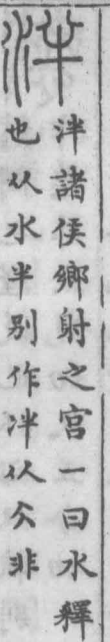 泮
泮諸侯鄉射之宫一曰水釋
也从水半别作冸从仌非